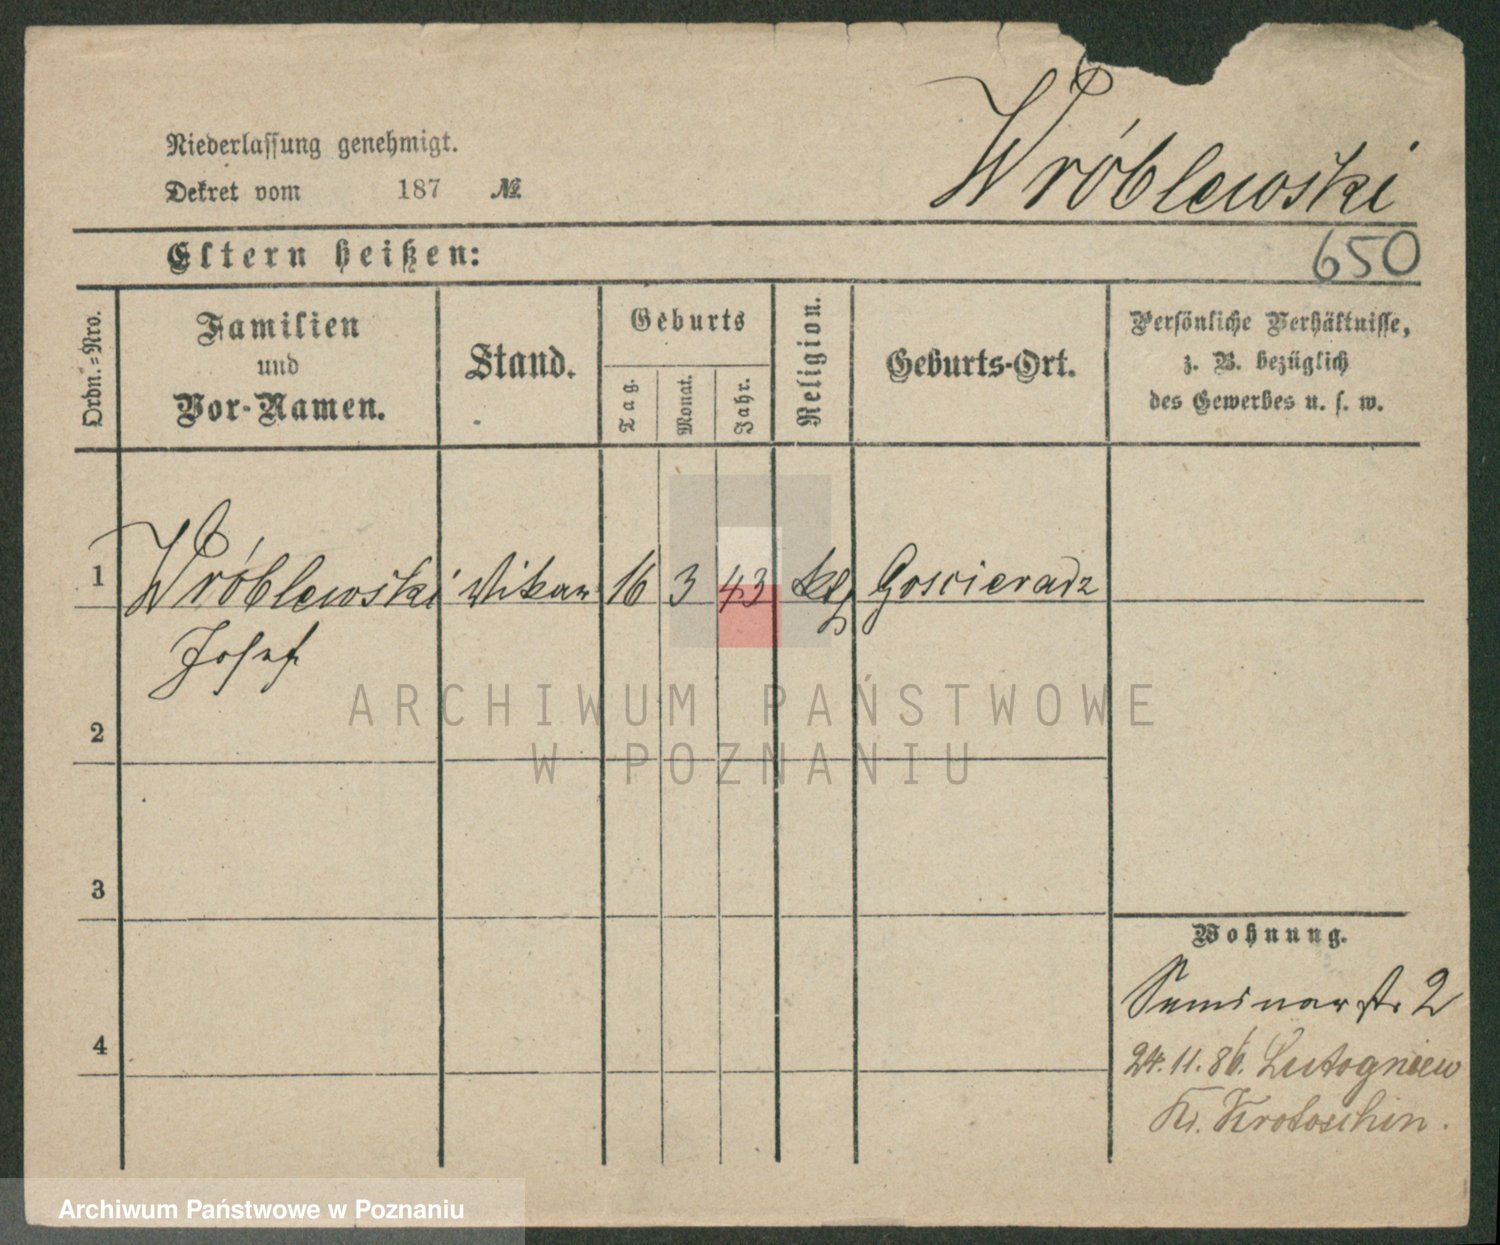 Wróblewski
Niederlassung genehmigt.
Dekret vom 187 №
Eltern heißen:
650
Ordn.=Nro.
Familien
und
Vor-Namen.
Stand.
Geburts
Tag.
Monat.
Jahr.
Religion.
Geburts-Ort.
Persönliche Verhältnisse,
z. B. bezüglich
des Gewerbes u. s. w.
1 Wróblewski Vikar 16 3 43 kth Goscieradz
Josef
ARCHIWUM PAŃSTWOWE
W POZNANIU
2
3
4
Wohnung.
Seminarstr 2
24.11.86. Lutogniew
Kr. Krotoschin.
Archiwum Państwowe w Poznaniu